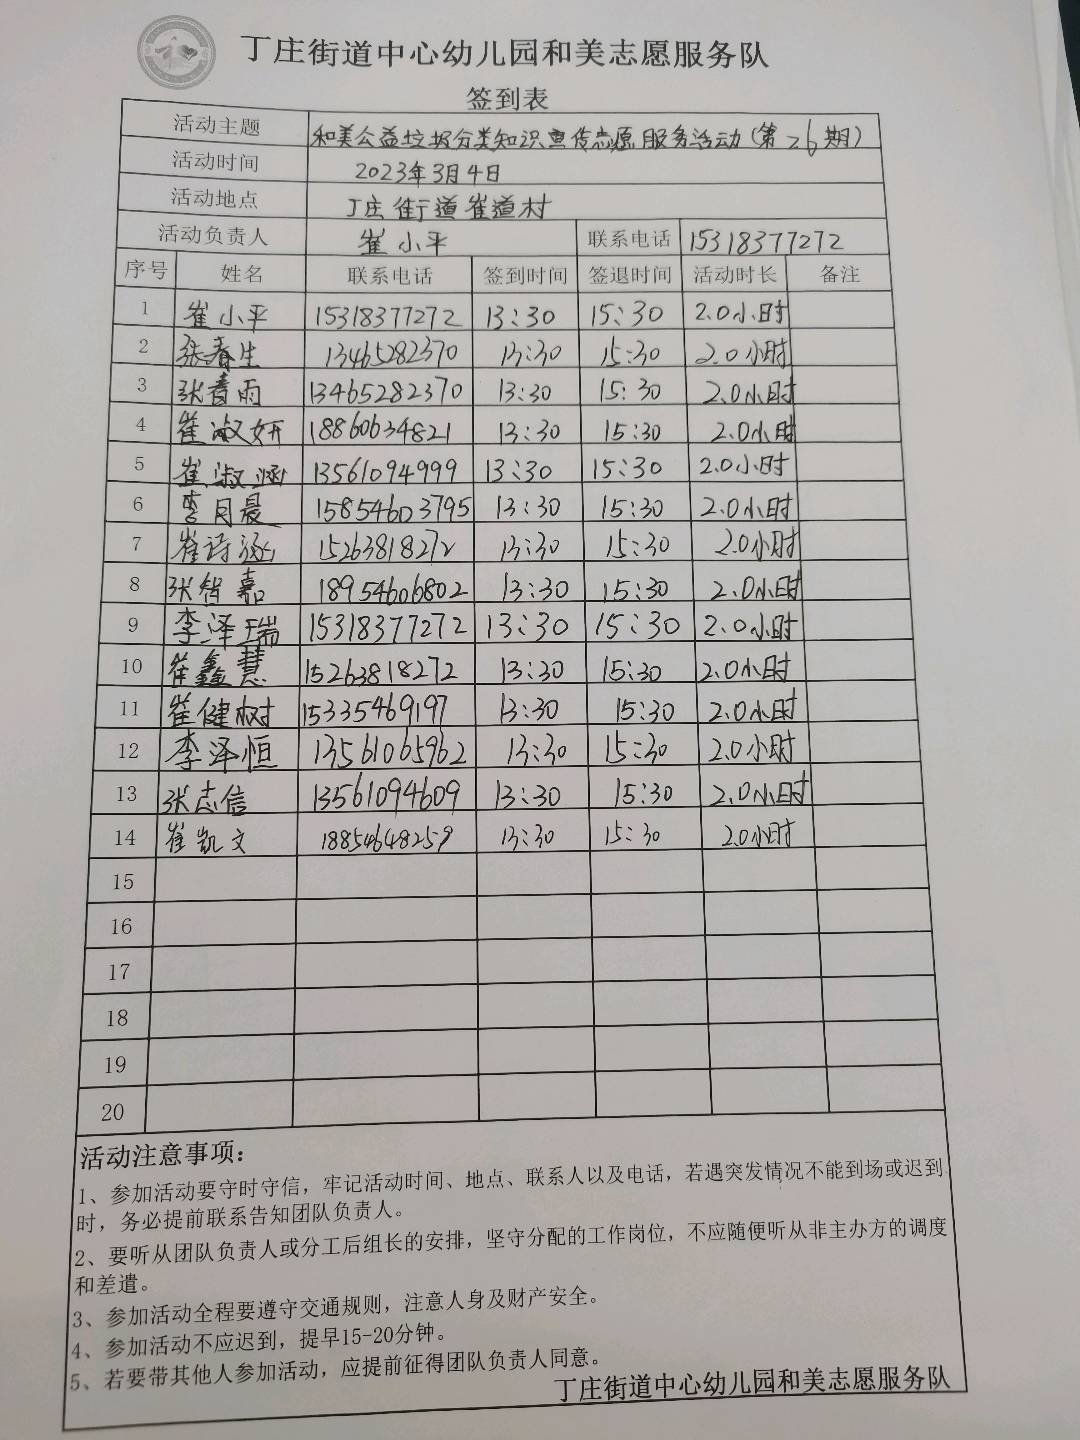 丁庄街道中心幼儿园和美志愿服务队
签到表
活动主题 和美公益垃圾分类知识宣传志愿服务活动(第26期)
活动时间 2023年3月4日
活动地点 丁庄街道崔道村
活动负责人 崔小平 联系电话 15318377272
序号 姓名 联系电话 签到时间 签退时间 活动时长 备注
1 崔小平 15318377272 13:30 15:30 2.0小时
2 张春生 13465282370 13:30 15:30 2.0小时
3 张春雨 13465282370 13:30 15:30 2.0小时
4 崔淑妍 18860634821 13:30 15:30 2.0小时
5 崔淑涵 13561094999 13:30 15:30 2.0小时
6 李月晨 15854603795 13:30 15:30 2.0小时
7 崔诗涵 15263818272 13:30 15:30 2.0小时
8 张智嘉 18954606802 13:30 15:30 2.0小时
9 李泽瑞 15318377272 13:30 15:30 2.0小时
10 崔鑫慧 15263818272 13:30 15:30 2.0小时
11 崔健树 15335469197 13:30 15:30 2.0小时
12 李泽恒 13561065962 13:30 15:30 2.0小时
13 张志信 13561094609 13:30 15:30 2.0小时
14 崔凯文 18854648259 13:30 15:30 2.0小时
15
16
17
18
19
20
活动注意事项：
1、参加活动要守时守信，牢记活动时间、地点、联系人以及电话，若遇突发情况不能到场或迟到
时，务必提前联系告知团队负责人。
2、要听从团队负责人或分工后组长的安排，坚守分配的工作岗位，不应随便听从非主办方的调度
和差遣。
3、参加活动全程要遵守交通规则，注意人身及财产安全。
4、参加活动不应迟到，提早15-20分钟。
5、若要带其他人参加活动，应提前征得团队负责人同意。
丁庄街道中心幼儿园和美志愿服务队